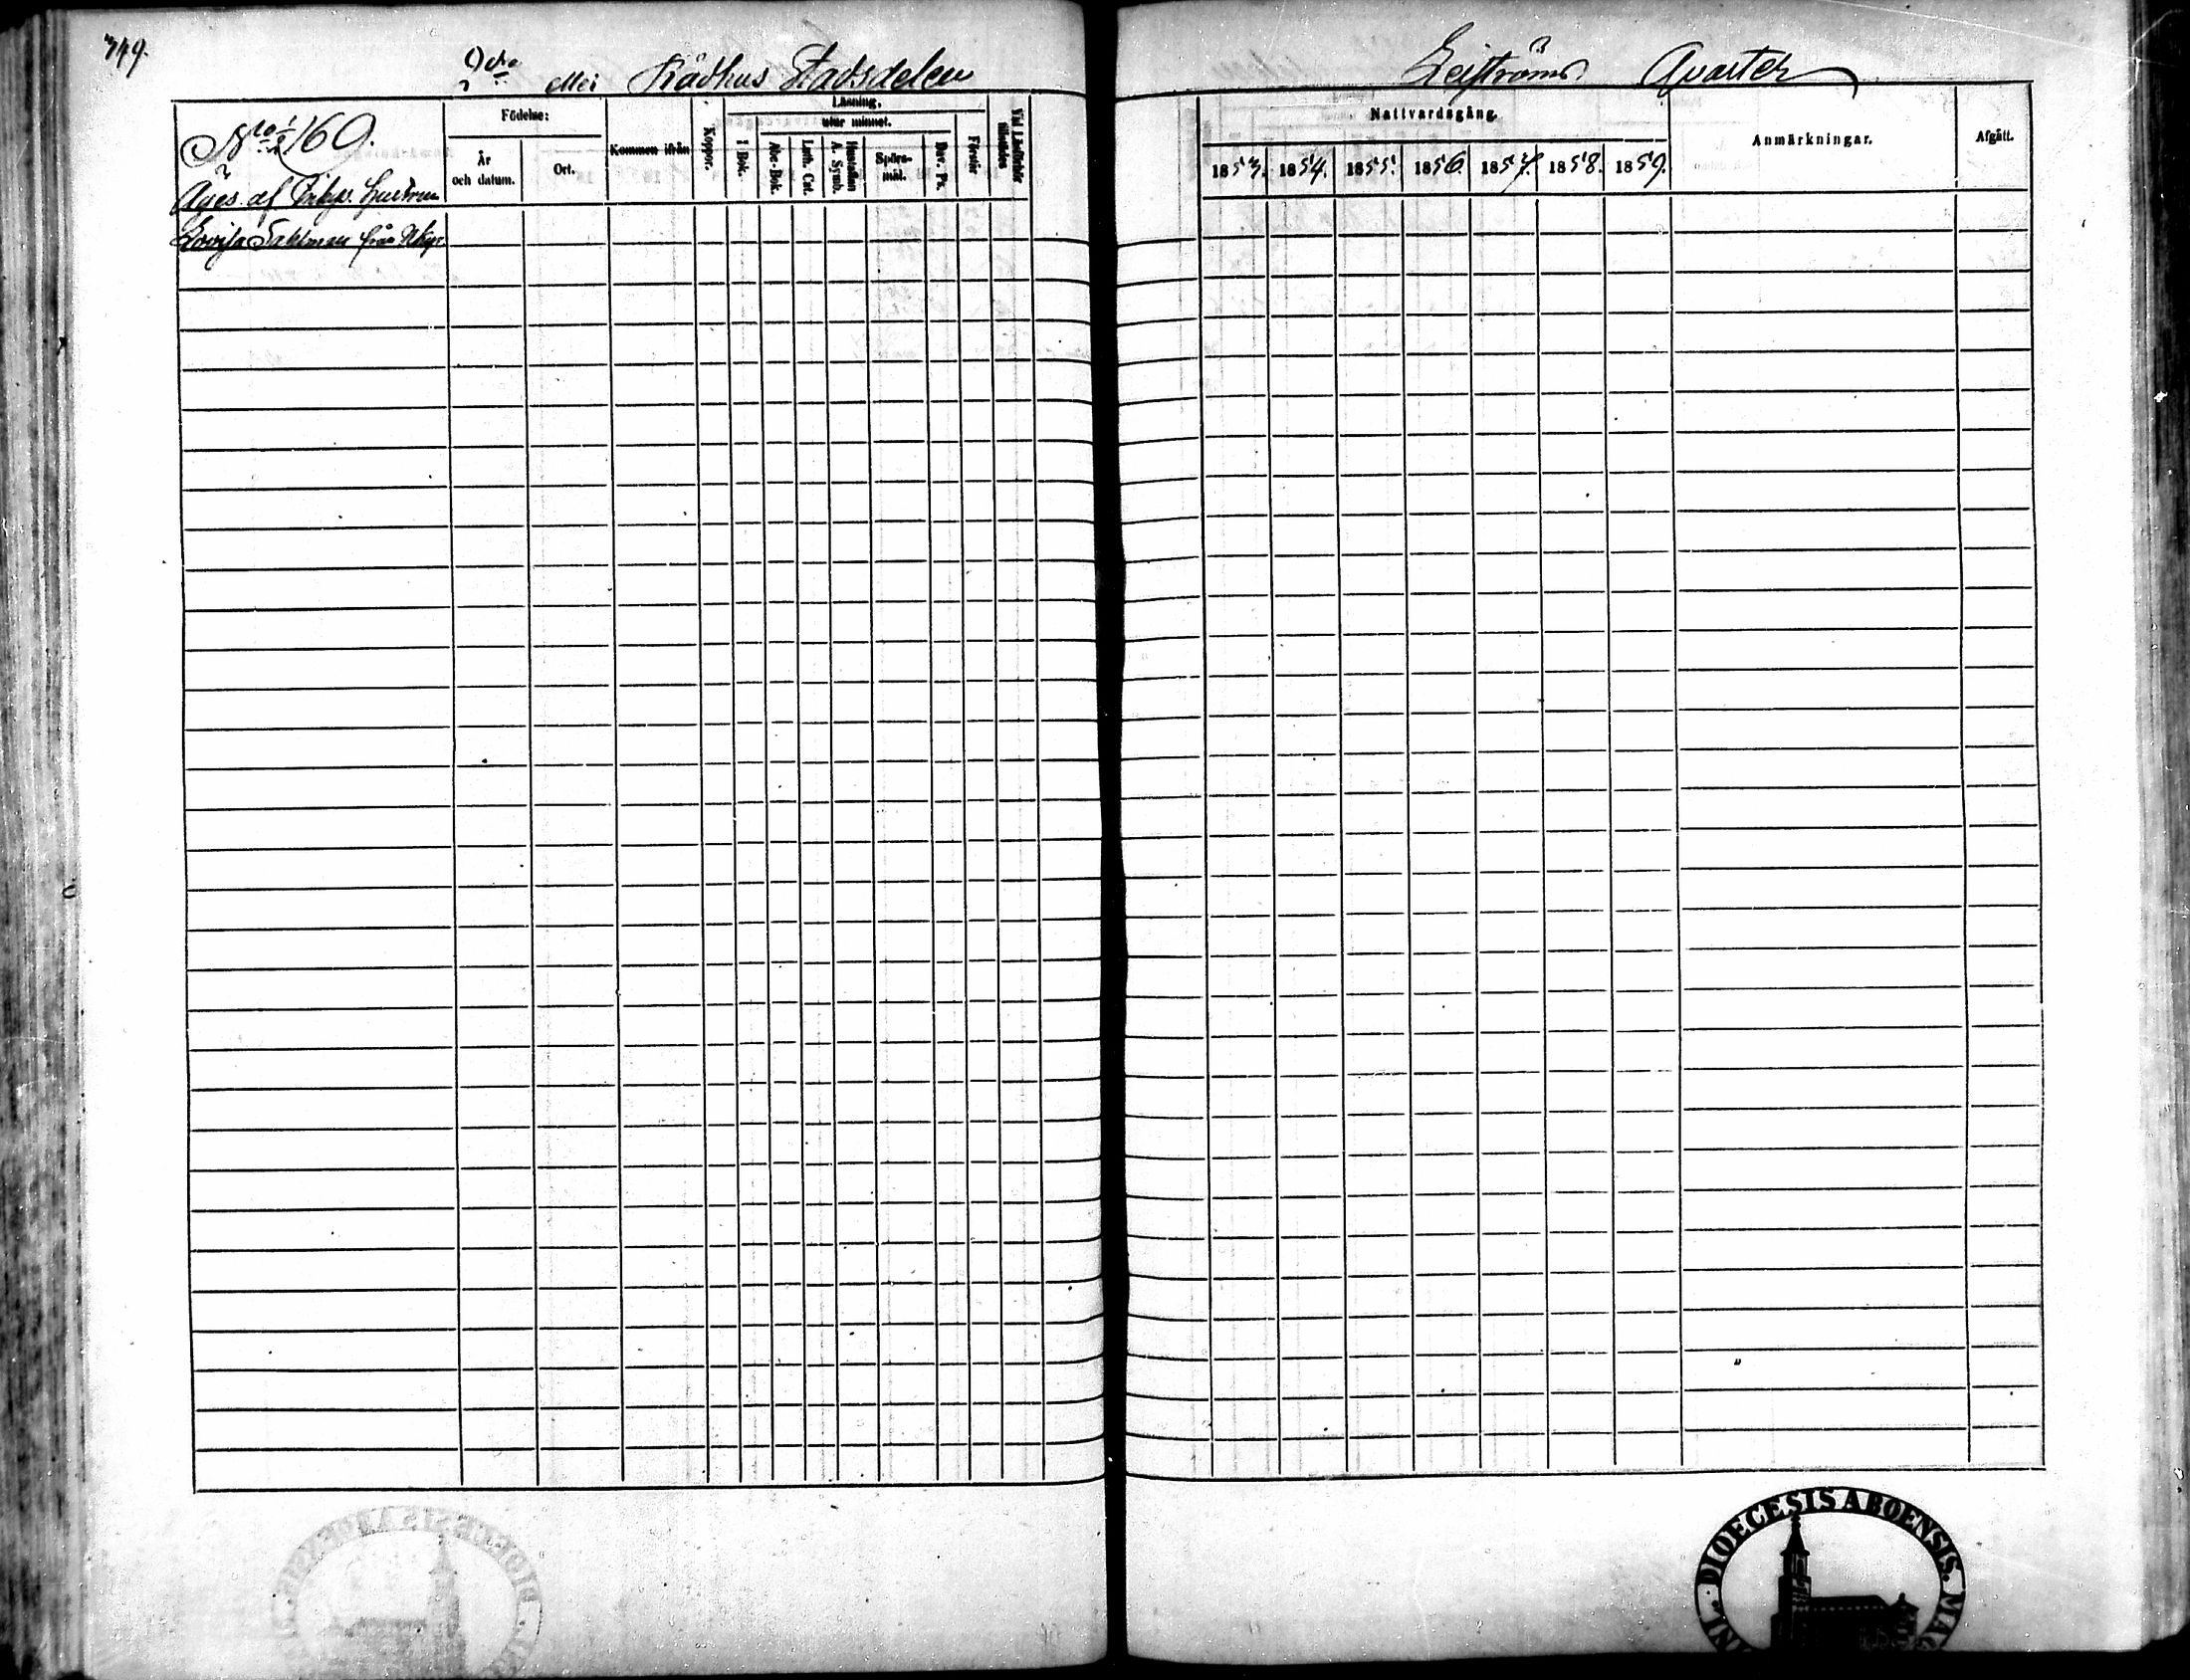 749.
2dra eller Rådhus Stadsdelen
Leiströms Qvarter
No 1/2 160.
Äges af hustru
Lovisa Sahlman från Nkyr
Födelse:
År
och datum.
Ort.
Kommen ifrån
Koppor.
Läsning.
I Bok.
utur minnet.
Abc-Bok.
Luth. Cat.
Hustaflan
A. Symb.
Spörs-
mål.
Dav. Ps.
Förstår
Vid Läsförhör
tillstädes
Nattvardsgång.
1853. 1854. 1855. 1856. 1857. 1858. 1859.
Anmärkningar.
Afgått.
DIOECESIS ABOENSIS. MAG